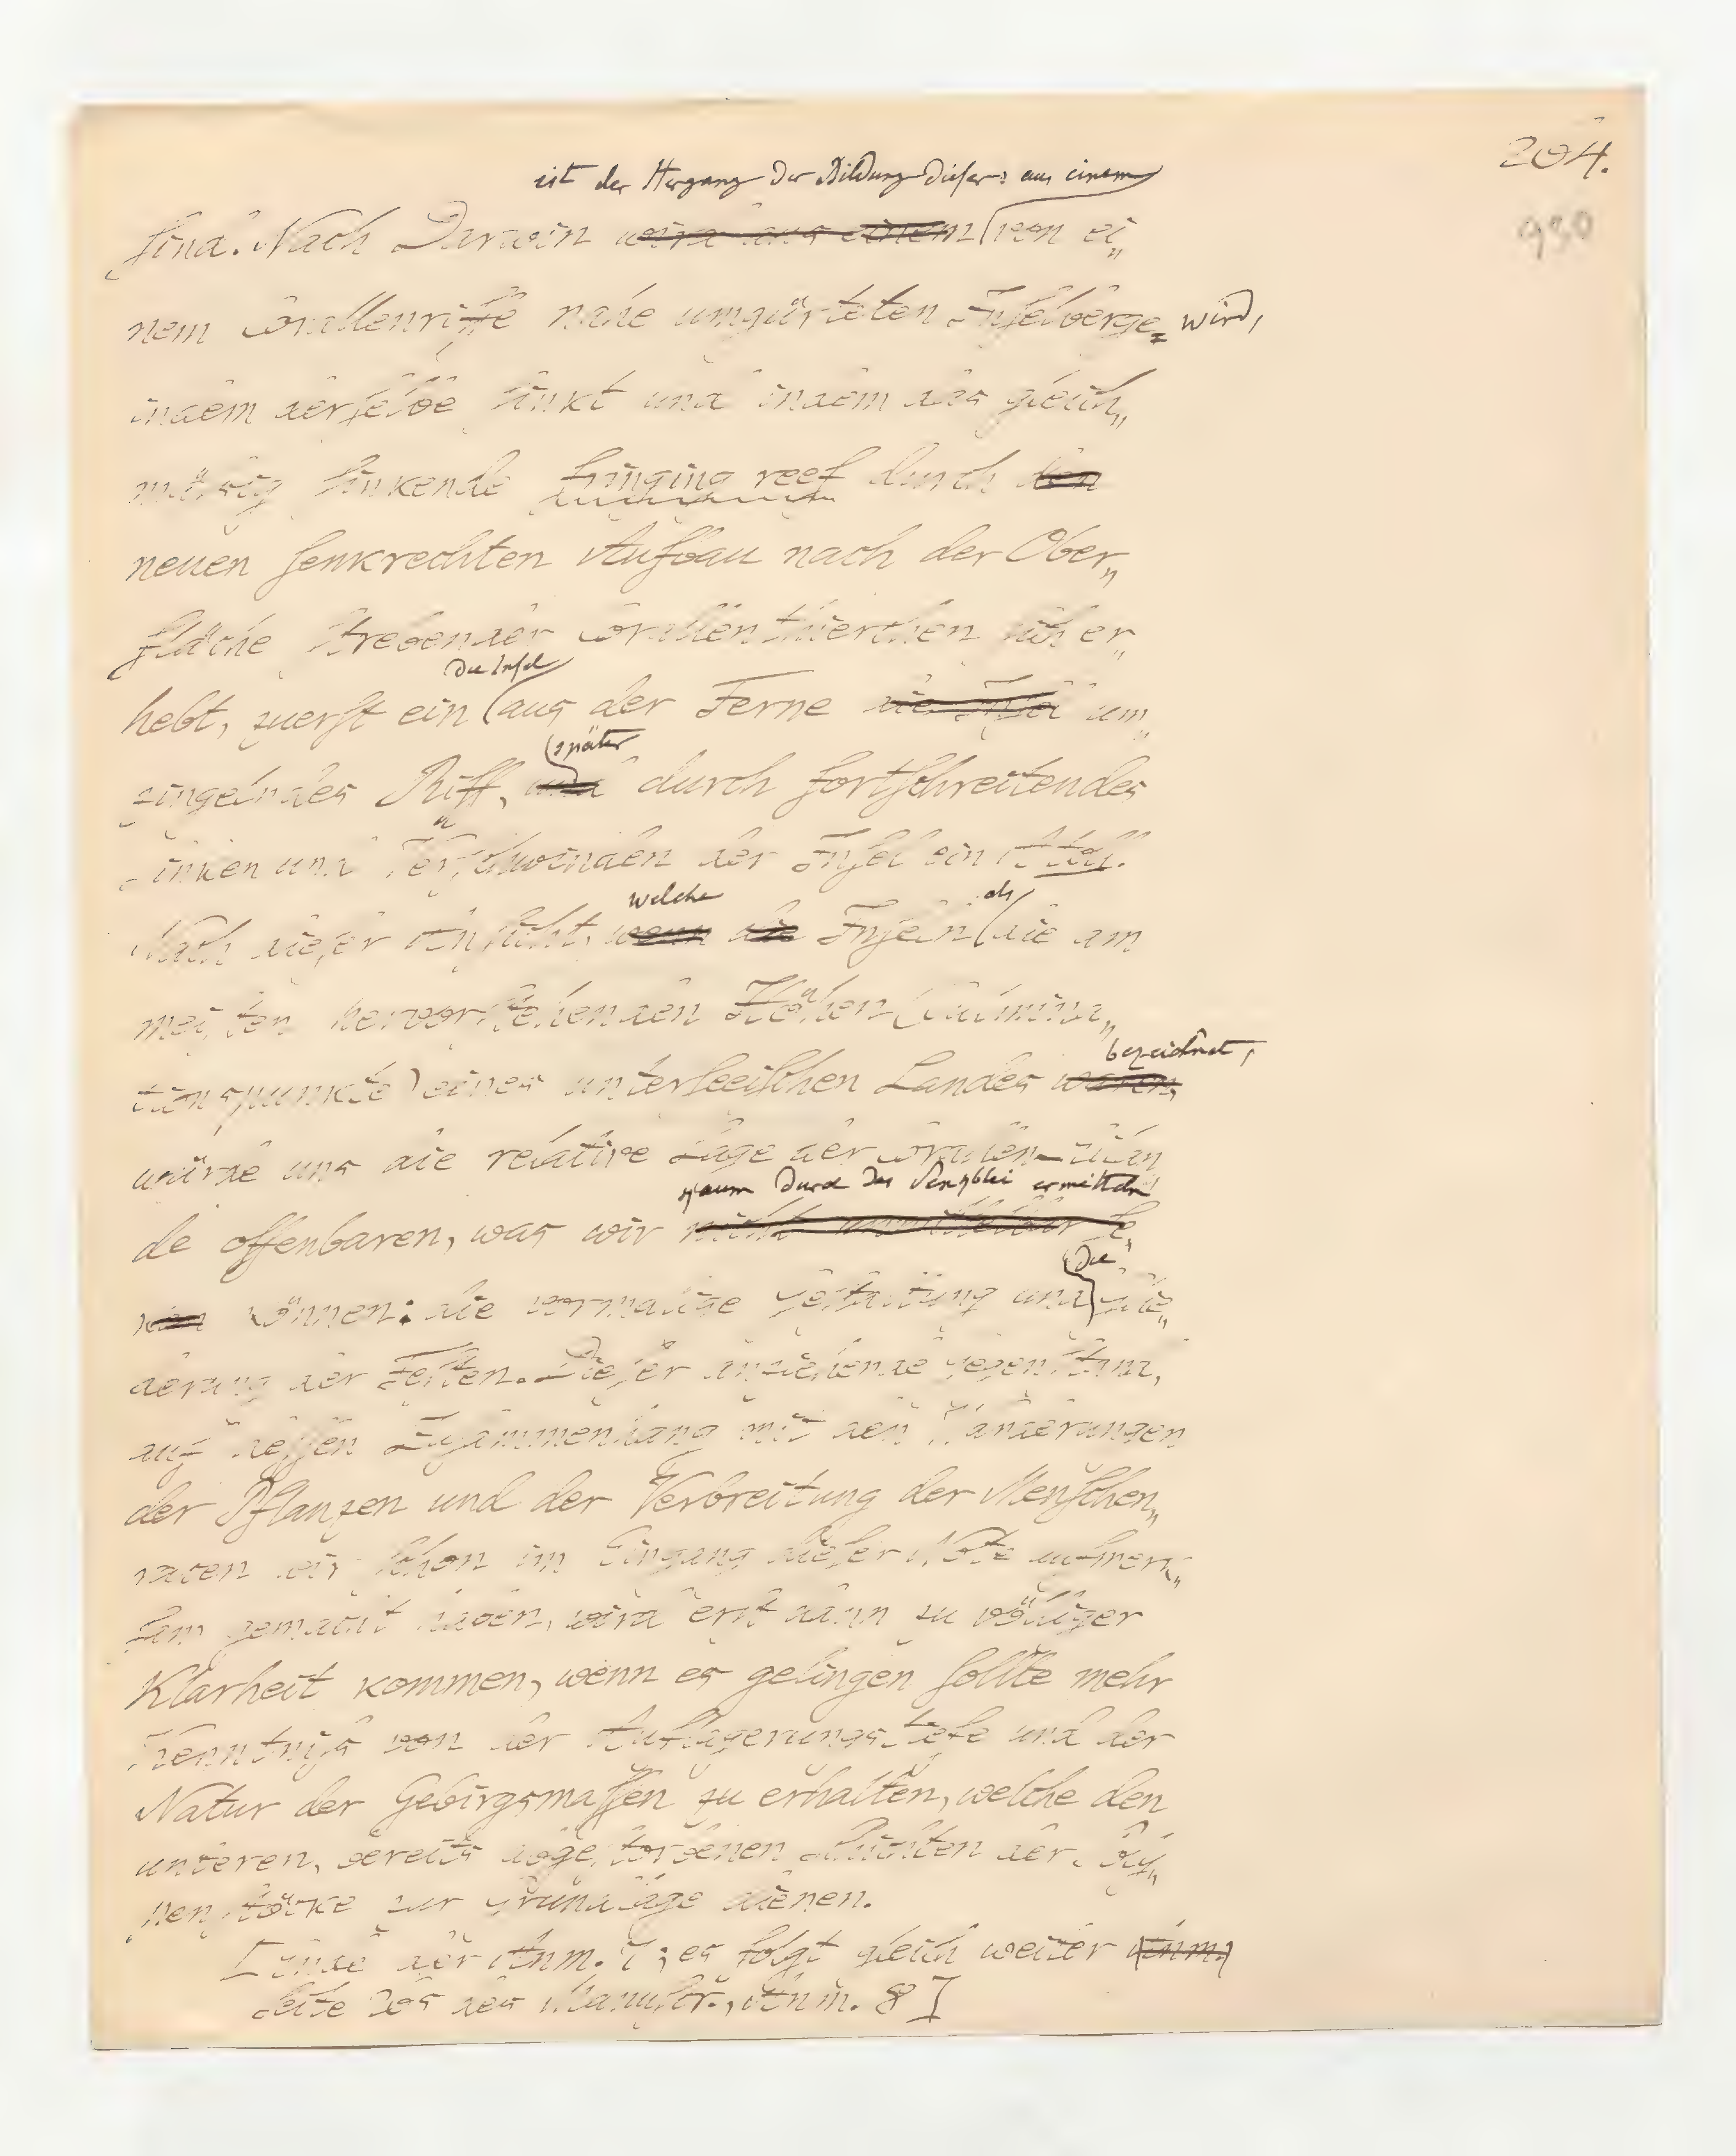 204.
950
ist der Hergang der Bildung dieser: aus einem
sind. Nach Darwin wird aus einem von ei„
nem Corallenriffe nahe umgürteten Inselberge wird,
indem derselbe sinkt und indem das gleich„
mäßig sinkende fringing reef durch den
neuen senkrechten Aufbau nach der Ober„
fläche strebender Corallenthierchen sich er„
die Insel
hebt, zuerst ein aus der Ferne die Insel um„
später
zingelndes Riff, und durch fortschreitendes
Sinken und Verschwinden der Insel ein Atoll.
welche als
Nach dieser Ansicht, wenn die Inseln die am
meisten hervorstehenden Höhen (Culmina„
bezeichnet,
tionspunkte) eines unterseeischen Landes waren,
würde uns die relative Lage der Corallen-Eilan
kaum durch das Senkblei ermitteln
de offenbaren, was wir nicht unmittelbar se„
die
hen können: die vormalige Gestaltung und Glie„
derung der Festen. Dieser anziehende Gegenstand,
auf dessen Zusammenhang mit den Wanderungen
der Pflanzen und der Verbreitung der Menschen„
racen wir schon im Eingang dieser Note aufmerk„
sam gemacht haben, wird erst dann zu völliger
Klarheit kommen, wenn es gelingen sollte mehr
Kenntniß von der Auflagerungstiefe und der
Natur der Gebirgsmassen zu erhalten, welche den
unteren, bereits abgestorbenen Schichten der Po„
penstöcke zur Grundlage dienen.
[Ende der Anm. 7; es folgt gleich weiter (Anm.)
Seite 205 des Manuscr., Anm. 8]